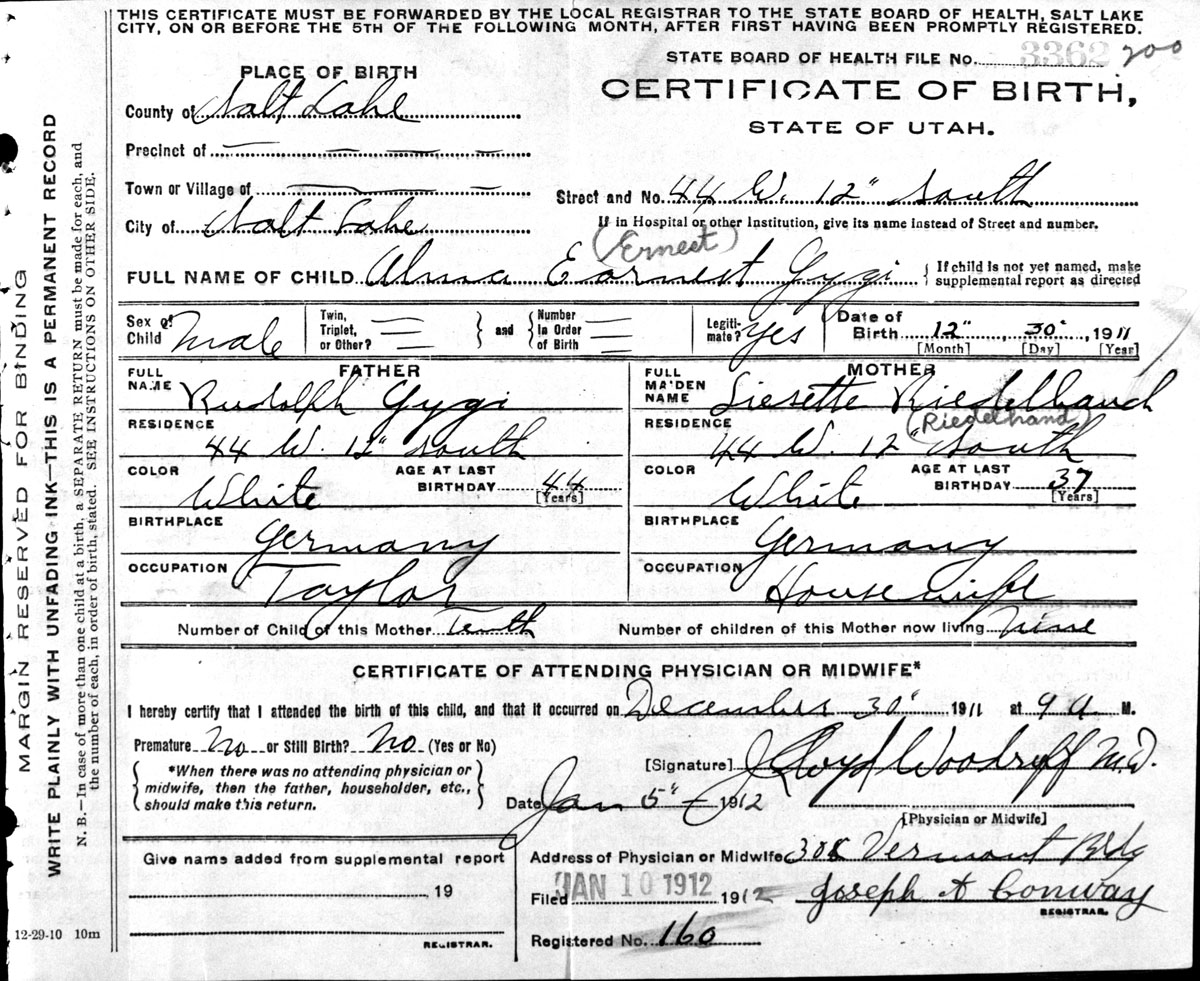 THIS CERTIFICATE MUST BE FORWARDED BY THE LOCAL REGISTRAR TO THE STATE BOARD OF HEALTH, SALT LAKE
CITY, ON OR BEFORE THE 5TH OF THE FOLLOWING MONTH, AFTER FIRST HAVING BEEN PROMPTLY REGISTERED.
STATE BOARD OF HEALTH FILE No. 3362 200
PLACE OF BIRTH
CERTIFICATE OF BIRTH,
County of Salt Lake
STATE OF UTAH.
Precinct of
Town or Village of
Street and No. 44 W. 12" South
City of Salt Lake
If in Hospital or other Institution, give its name instead of Street and number.
(Ernest)
FULL NAME OF CHILD Alma Earnest Gygi
{ If child is not yet named, make
supplemental report as directed
Sex of Child Male
Twin, Triplet, or Other? } and { Number In Order of Birth
Legiti-mate? Yes
Date of Birth 12", 30", 1911
[Month] [Day] [Year]
FATHER
MOTHER
FULL NAME Rudolph Gygi
FULL MAIDEN NAME Liesette Riedelbauch
(Riedelhand)
RESIDENCE 44 W. 12" South
RESIDENCE 44 W. 12" South
COLOR White
AGE AT LAST BIRTHDAY 44 [Years]
COLOR White
AGE AT LAST BIRTHDAY 37 [Years]
BIRTHPLACE Germany
BIRTHPLACE Germany
OCCUPATION Taylor
OCCUPATION Housewife
Number of Child of this Mother Tenth
Number of children of this Mother now living Nine
CERTIFICATE OF ATTENDING PHYSICIAN OR MIDWIFE*
I hereby certify that I attended the birth of this child, and that it occurred on December 30" 1911 at 9 a M.
Premature No or Still Birth? No (Yes or No)
{ *When there was no attending physician or
midwife, then the father, householder, etc.,
should make this return. }
[Signature] J. Lloyd Woodruff M.D.
Date Jan 5" 1912
[Physician or Midwife]
Give name added from supplemental report
19
REGISTRAR.
Address of Physician or Midwife 308 Vermont Bldg
Filed JAN 10 1912 1912
Joseph A Conway
REGISTRAR.
Registered No. 160
12-29-10 10m
MARGIN RESERVED FOR BINDING
WRITE PLAINLY WITH UNFADING INK—THIS IS A PERMANENT RECORD
N. B.—In case of more than one child at a birth, a SEPARATE RETURN must be made for each, and
the number of each, in order of birth, stated. SEE INSTRUCTIONS ON OTHER SIDE.